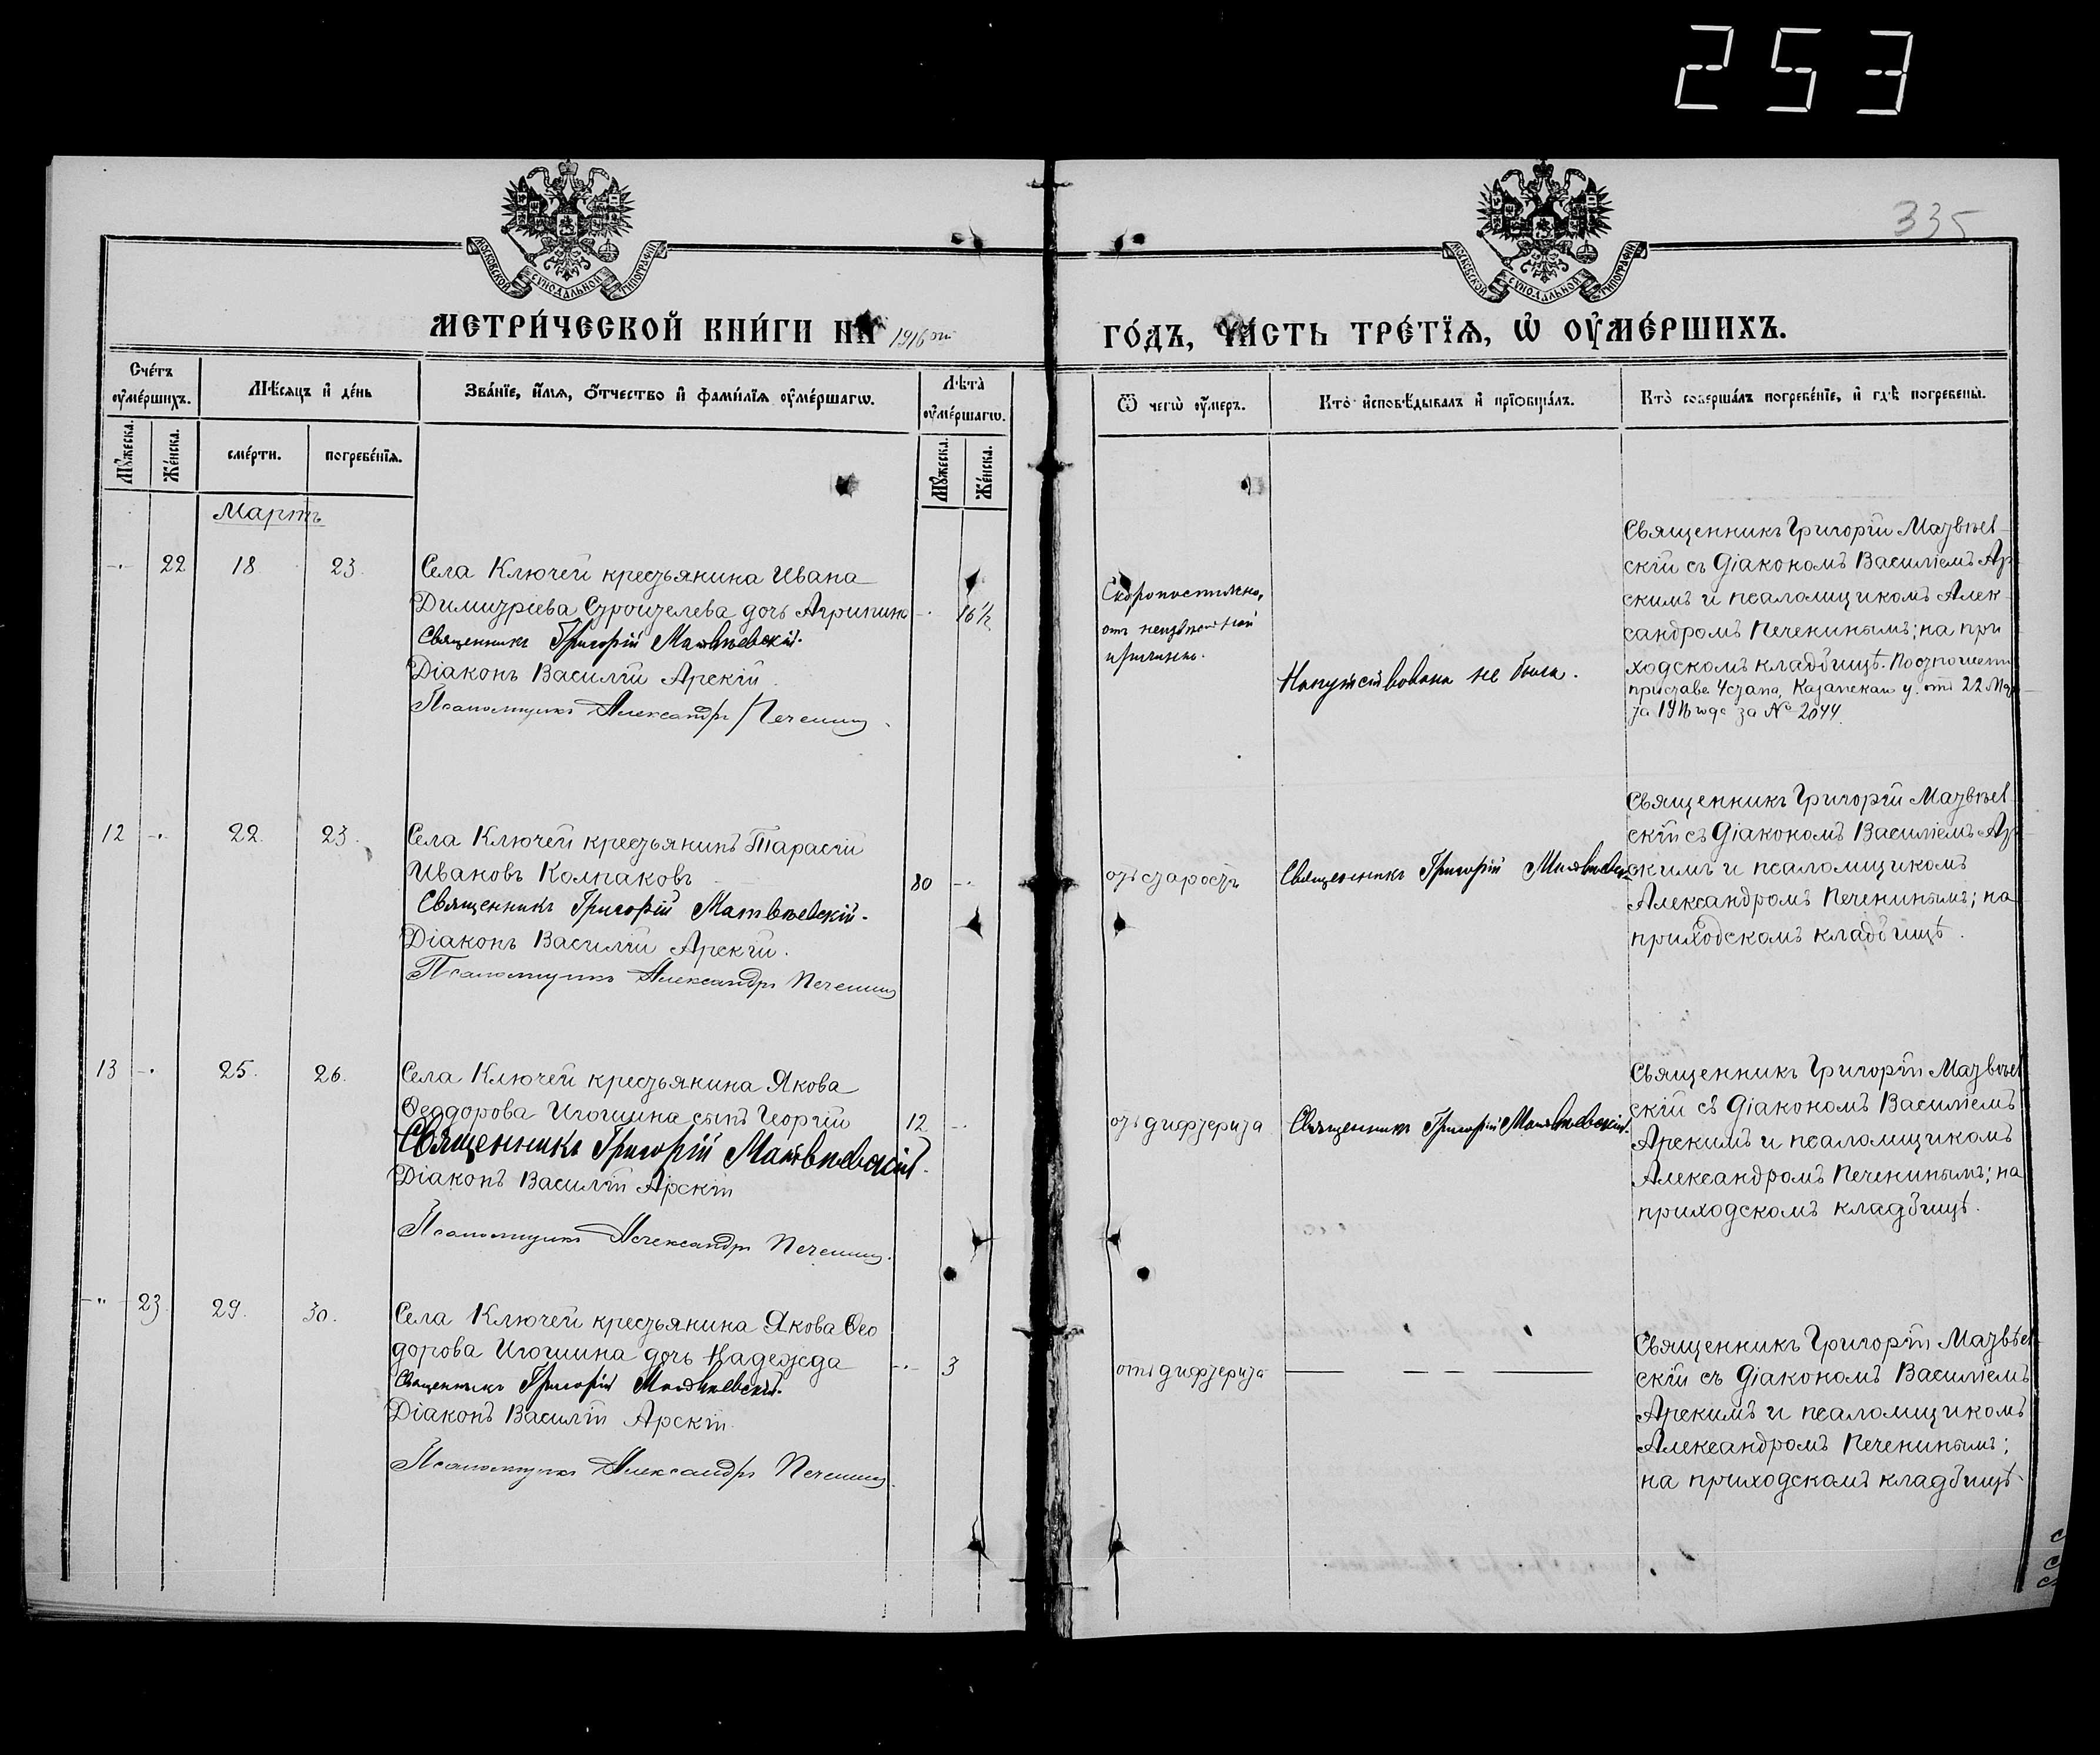 253
335
МОСКОВСКОЙ СѴНОДАЛЬНОЙ ТИПОГРАФІИ
МОСКОВСКОЙ СѴНОДАЛЬНОЙ ТИПОГРАФІИ
МЕТРИ́ЧЕСКОЙ КНИ́ГИ НА 1916 ый ГО́ДЪ, ЧА́СТЬ ТРЕ́ТІѦ, Ѡ҆ ОУ҆МЕ́РШИХЪ.
Сче́тъ оу҆ме́ршихъ.
Мꙋ́жеска.
Же́нска.
Мѣ́сяцъ и҆ де́нь
сме́рти.
погребе́нїѧ.
Зва́нїе, и҆́мѧ, ѻ҆́тчество и҆ фами́лїѧ оу҆ме́ршагѡ.
Лѣ́та оу҆ме́ршагѡ.
Мꙋ́жеска.
Же́нска.
Ѿ чегѡ̀ оу҆́меръ.
Кто̀ и҆сповѣ́дывалъ и҆ прїѡбща́лъ.
Кто̀ соверша́лъ погребе́нїе, и҆ гдѣ̀ погребены̀.
Мартъ
-"- 22 18 23
Села Ключей крестьянина Ивана
Димитріева Строителева дочь Агрипина -"- 16½
Священникъ Григорій Матвѣевскій.
Діаконъ Василій Арскій.
Псаломщикъ Александръ Печенинъ
Скоропостижно,
отъ неизвѣстной
причины.
Напутствована не была.
Священникъ Григорій Матвѣев-
скій съ Діакономъ Василіемъ Ар-
скимъ и псаломщикомъ Алек-
сандромъ Печенинымъ; на при
ходскомъ кладбищѣ. По отношенію
пристава 4 стана, Казанскаго у. отъ 22 Мар
та 1916 года за № 2044.
12 -"- 22 23
Села Ключей крестьянинъ Тарасій
Ивановъ Колпаковъ 80 -"-
Священникъ Григорій Матвѣевскій.
Діаконъ Василій Арскій.
Псаломщикъ Александръ Печенинъ
отъ старости
Священникъ Григорій Матвѣевскій
Священникъ Григорій Матвѣев
скій съ Діакономъ Василіемъ Ар-
скимъ и псаломщикомъ
Александромъ Печенинымъ; на
приходскомъ кладбищѣ.
13 -"- 25. 26.
Села Ключей крестьянина Якова
Ѳеодорова Игошина сынъ Георгій 12 -"-
Священникъ Григорій Матвѣевскій.
Діаконъ Василій Арскій
Псаломщикъ Александръ Печенинъ.
отъ дифтерита
Священникъ Григорій Матвѣевскій.
Священникъ Григорій Матвѣев
скій съ Діакономъ Василіемъ
Арскимъ и псаломщикомъ
Александромъ Печенинымъ; на
приходскомъ кладбищѣ.
-"- 23 29. 30.
Села Ключей крестьянина Якова Ѳео
дорова Игошина дочь Надежда -"- 3
Священникъ Григорій Матвѣевскій.
Діаконъ Василій Арскій.
Псаломщикъ Александръ Печенинъ.
отъ дифтерита
Священникъ Григорій Матвѣев-
скій съ Діакономъ Василіемъ
Арскимъ и псаломщикомъ
Александромъ Печенинымъ;
на приходскомъ кладбищѣ.